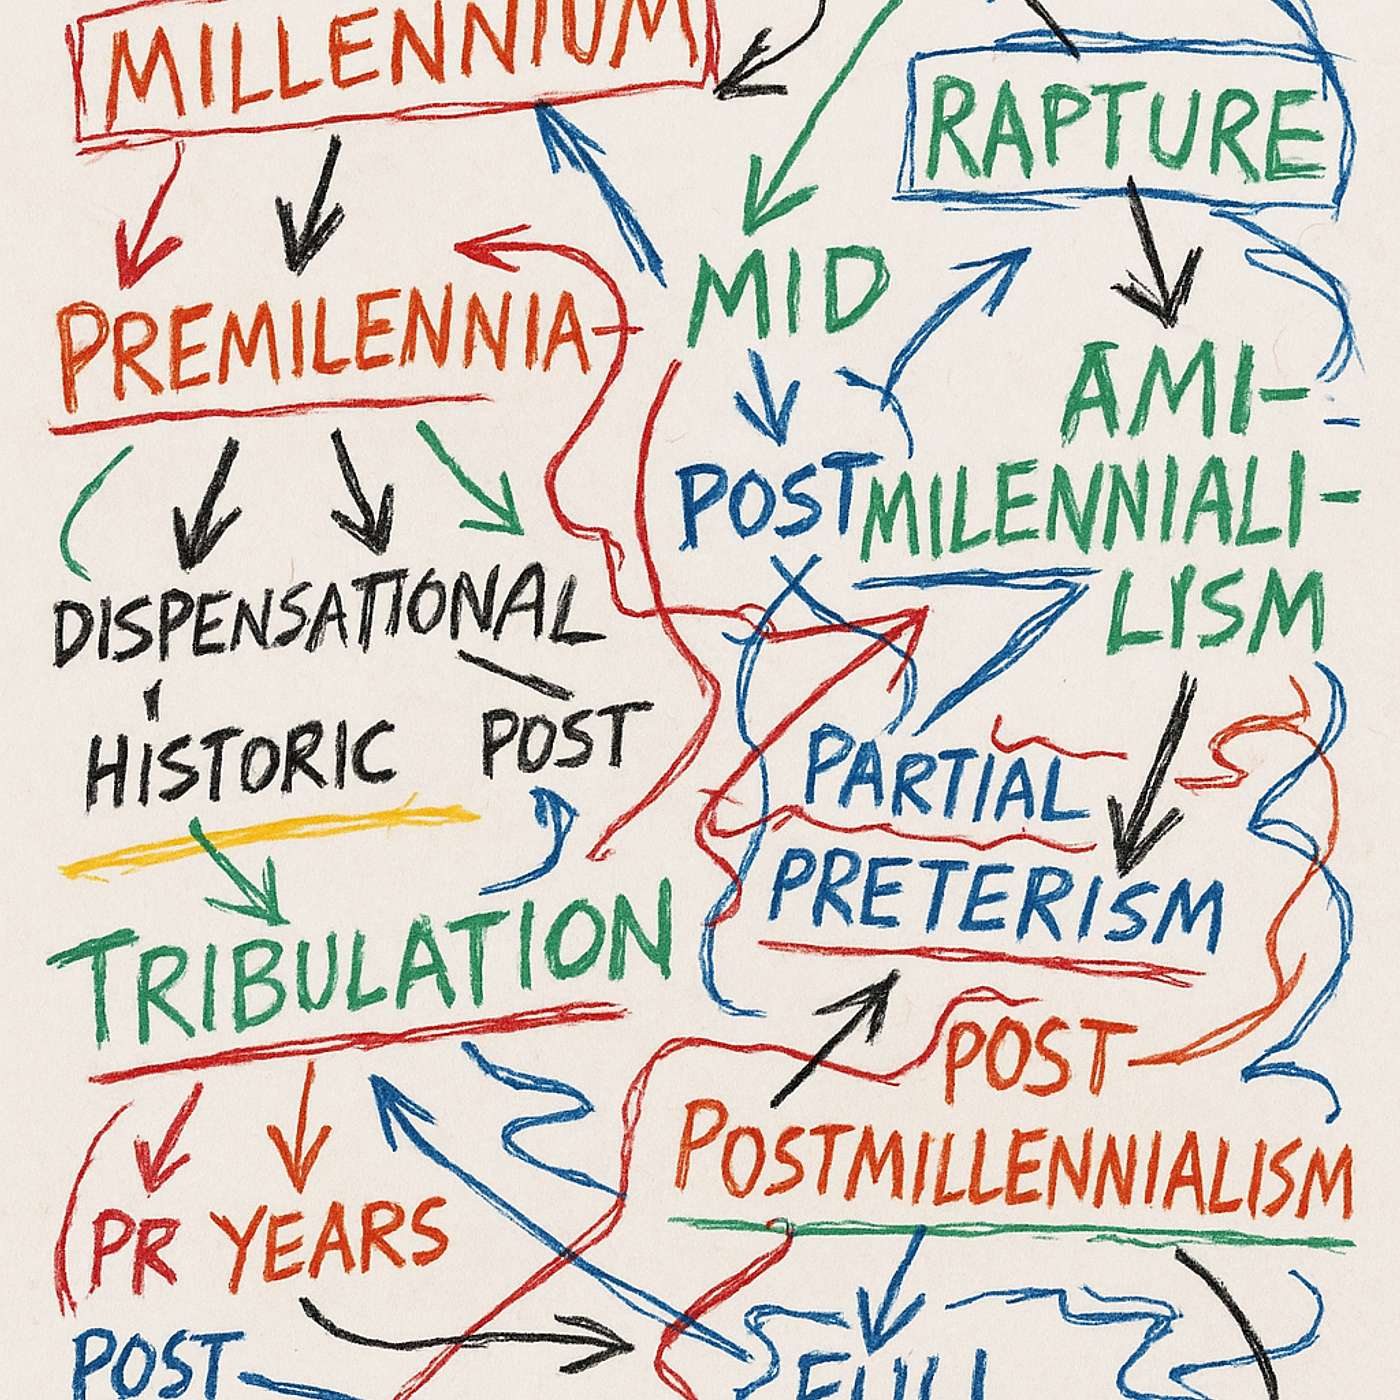 MILLENNIUM
RAPTURE
MID
PREMILENNIA-
AMI-
POSTMILENNIALI-
LISM
DISPENSATIONAL
HISTORIC
POST
PARTIAL
PRETERISM
TRIBULATION
POST
POSTMILLENNIALISM
PR YEARS
POST
FULL